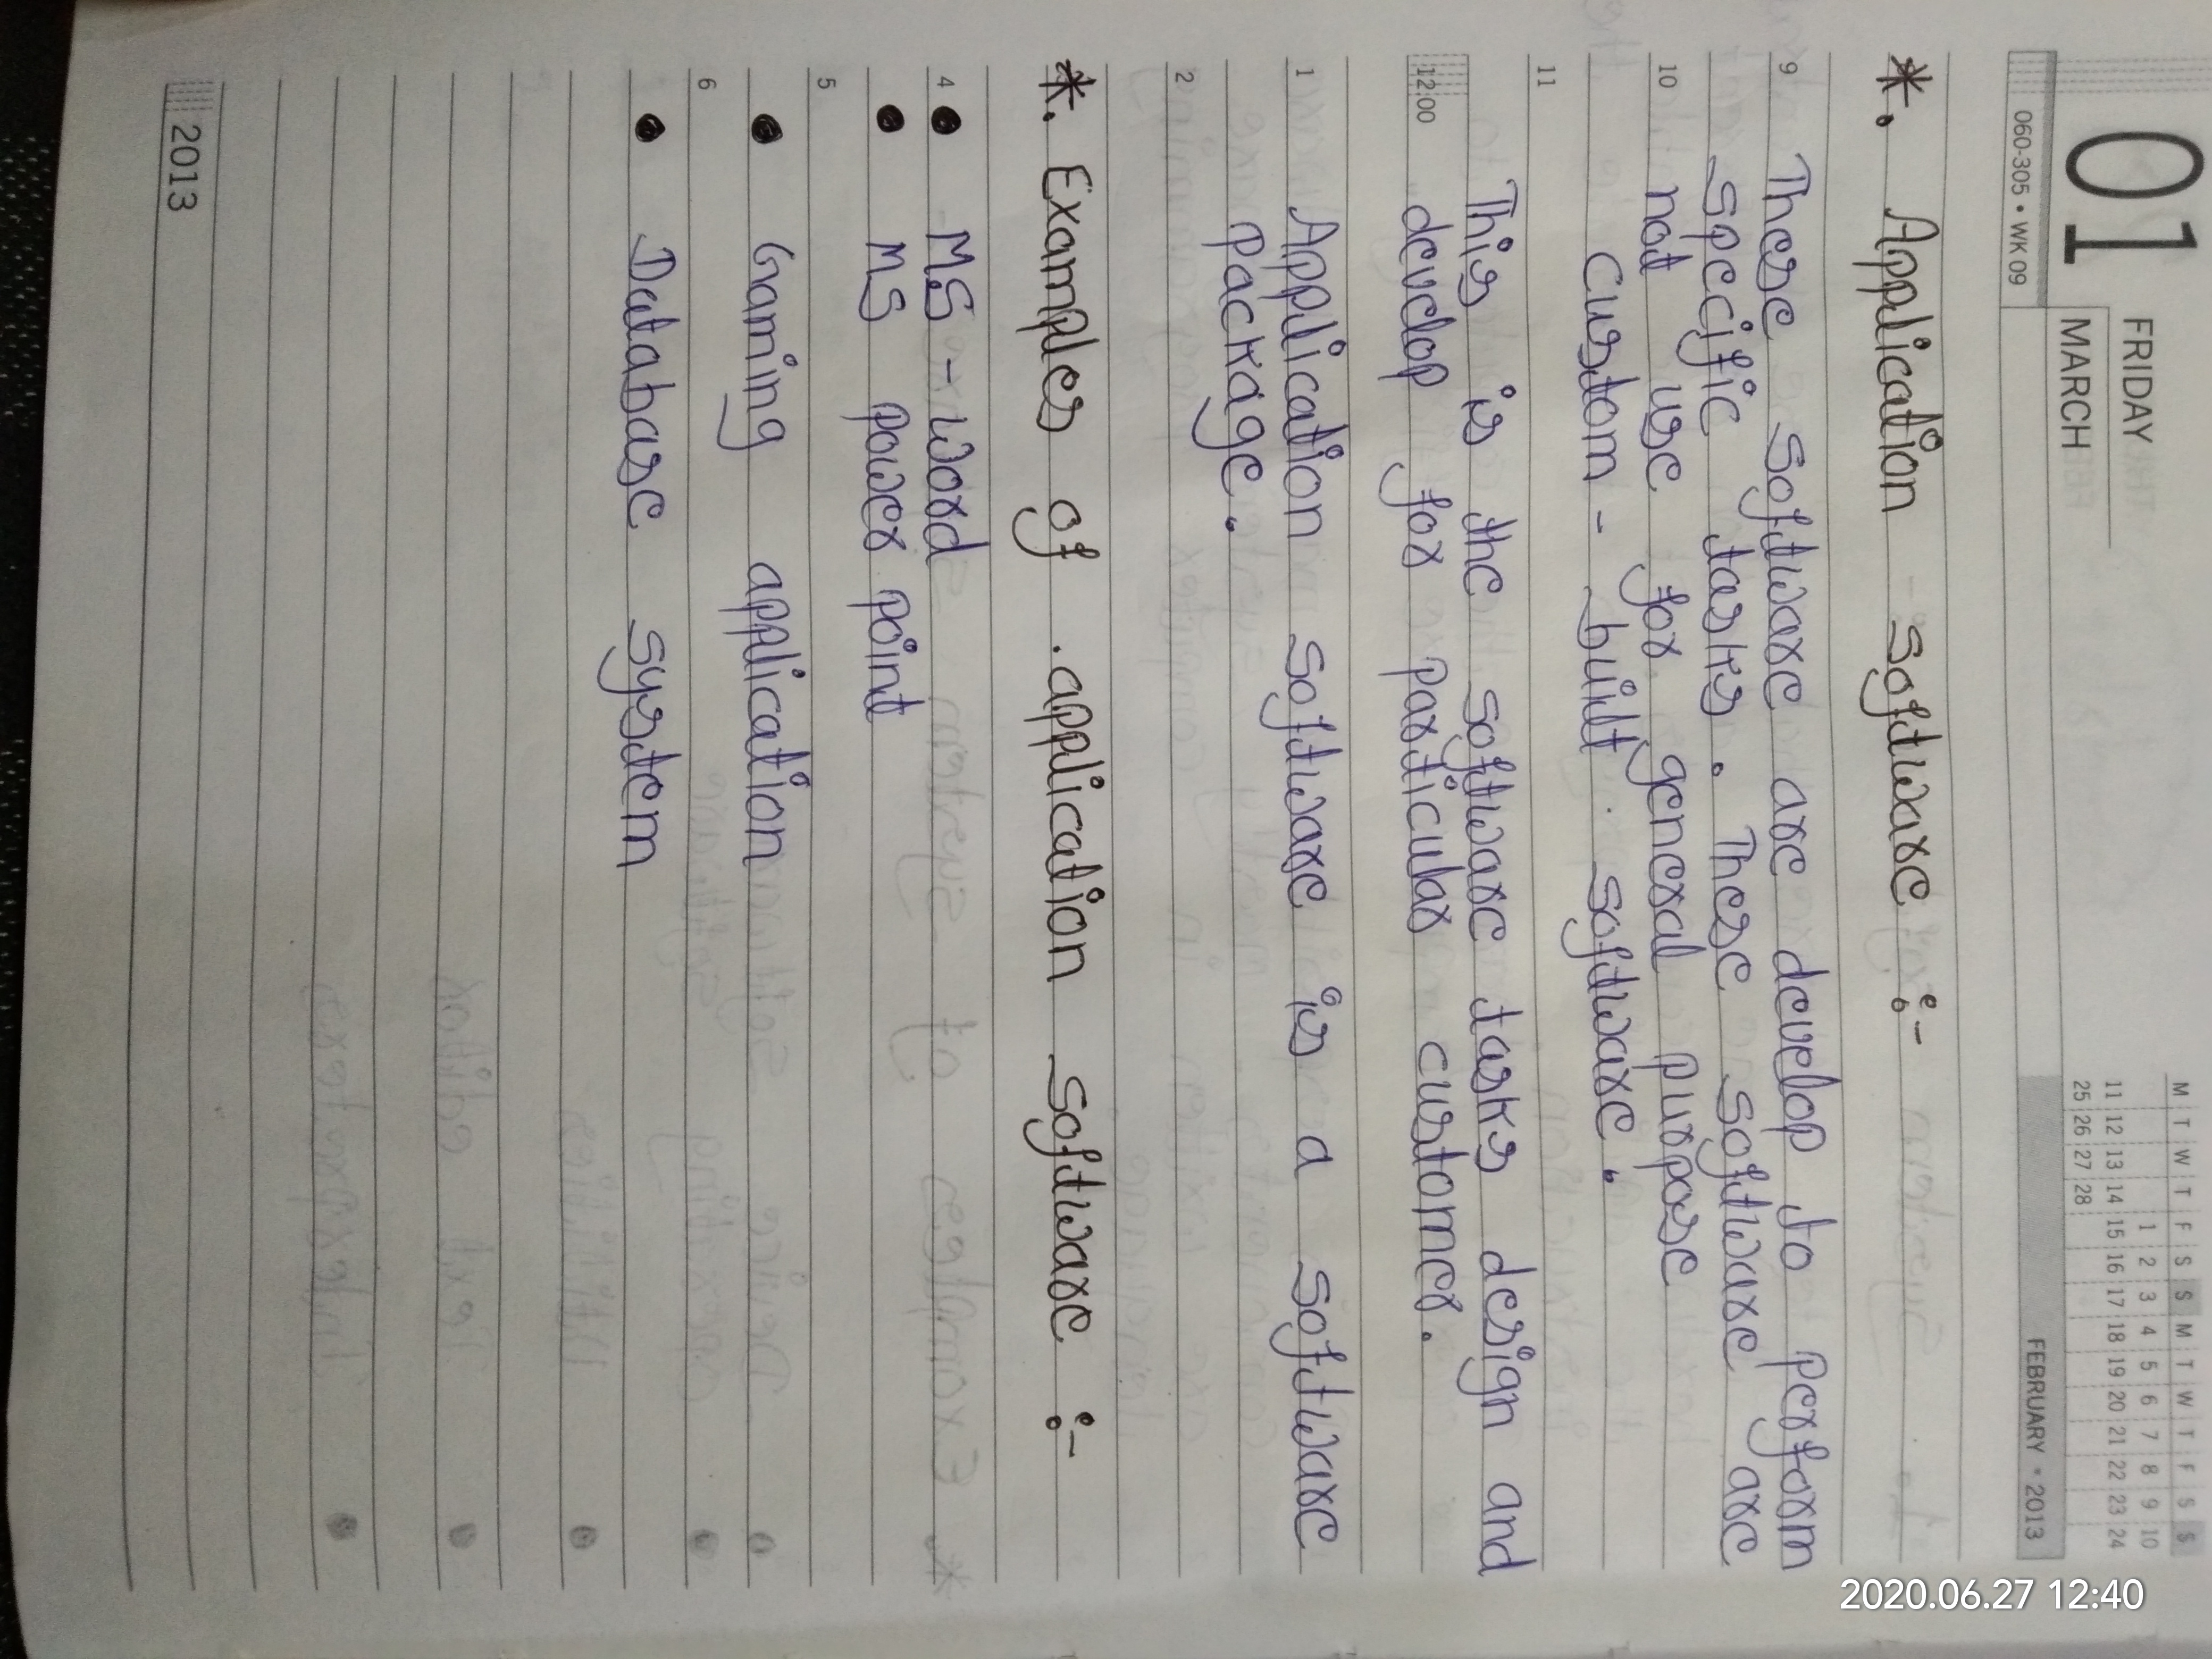 01
FRIDAY
MARCH
060-305 • WK 09
M T W T F S S M T W T F S S
1 2 3 4 5 6 7 8 9 10
11 12 13 14 15 16 17 18 19 20 21 22 23 24
25 26 27 28
FEBRUARY • 2013
2020.06.27 12:40
*. Application software :-
9 These software are develop to perform
specific tasks. These software are
10 not use for general purpose
custom - built software.
11
This is the software tasks design and
12.00 develop for particular customer.
1 Application software is a software
package.
2
*. Examples of .application software :-
4 • MS - Word
• MS power point
5
• Gaming application
6
• Database system
2013